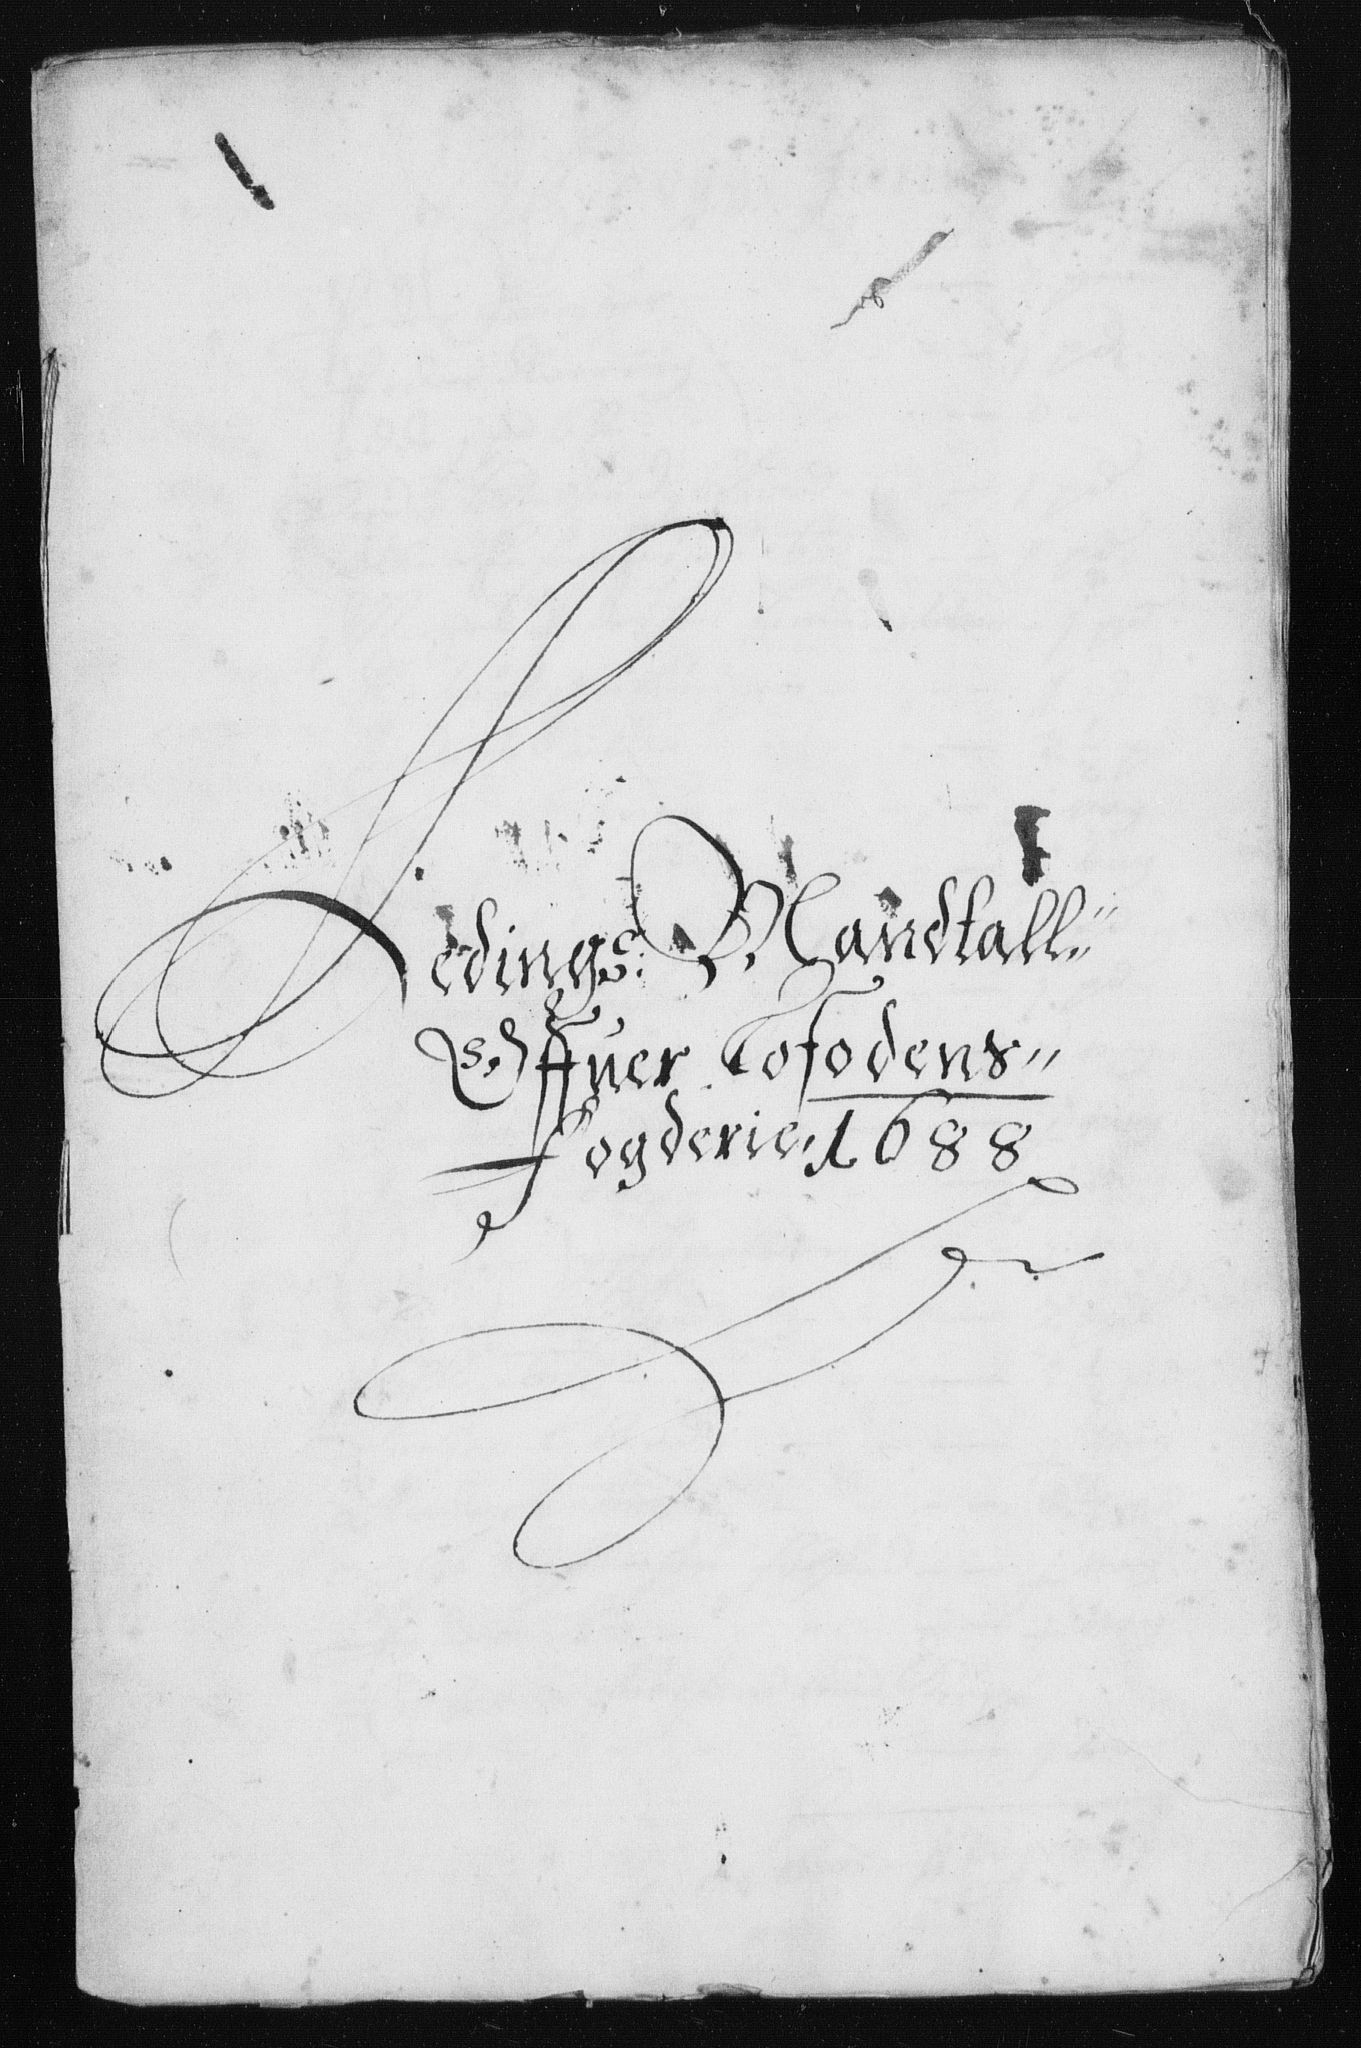 Ledings Mandtall
Offuer Lofodens
Fogderie 1688